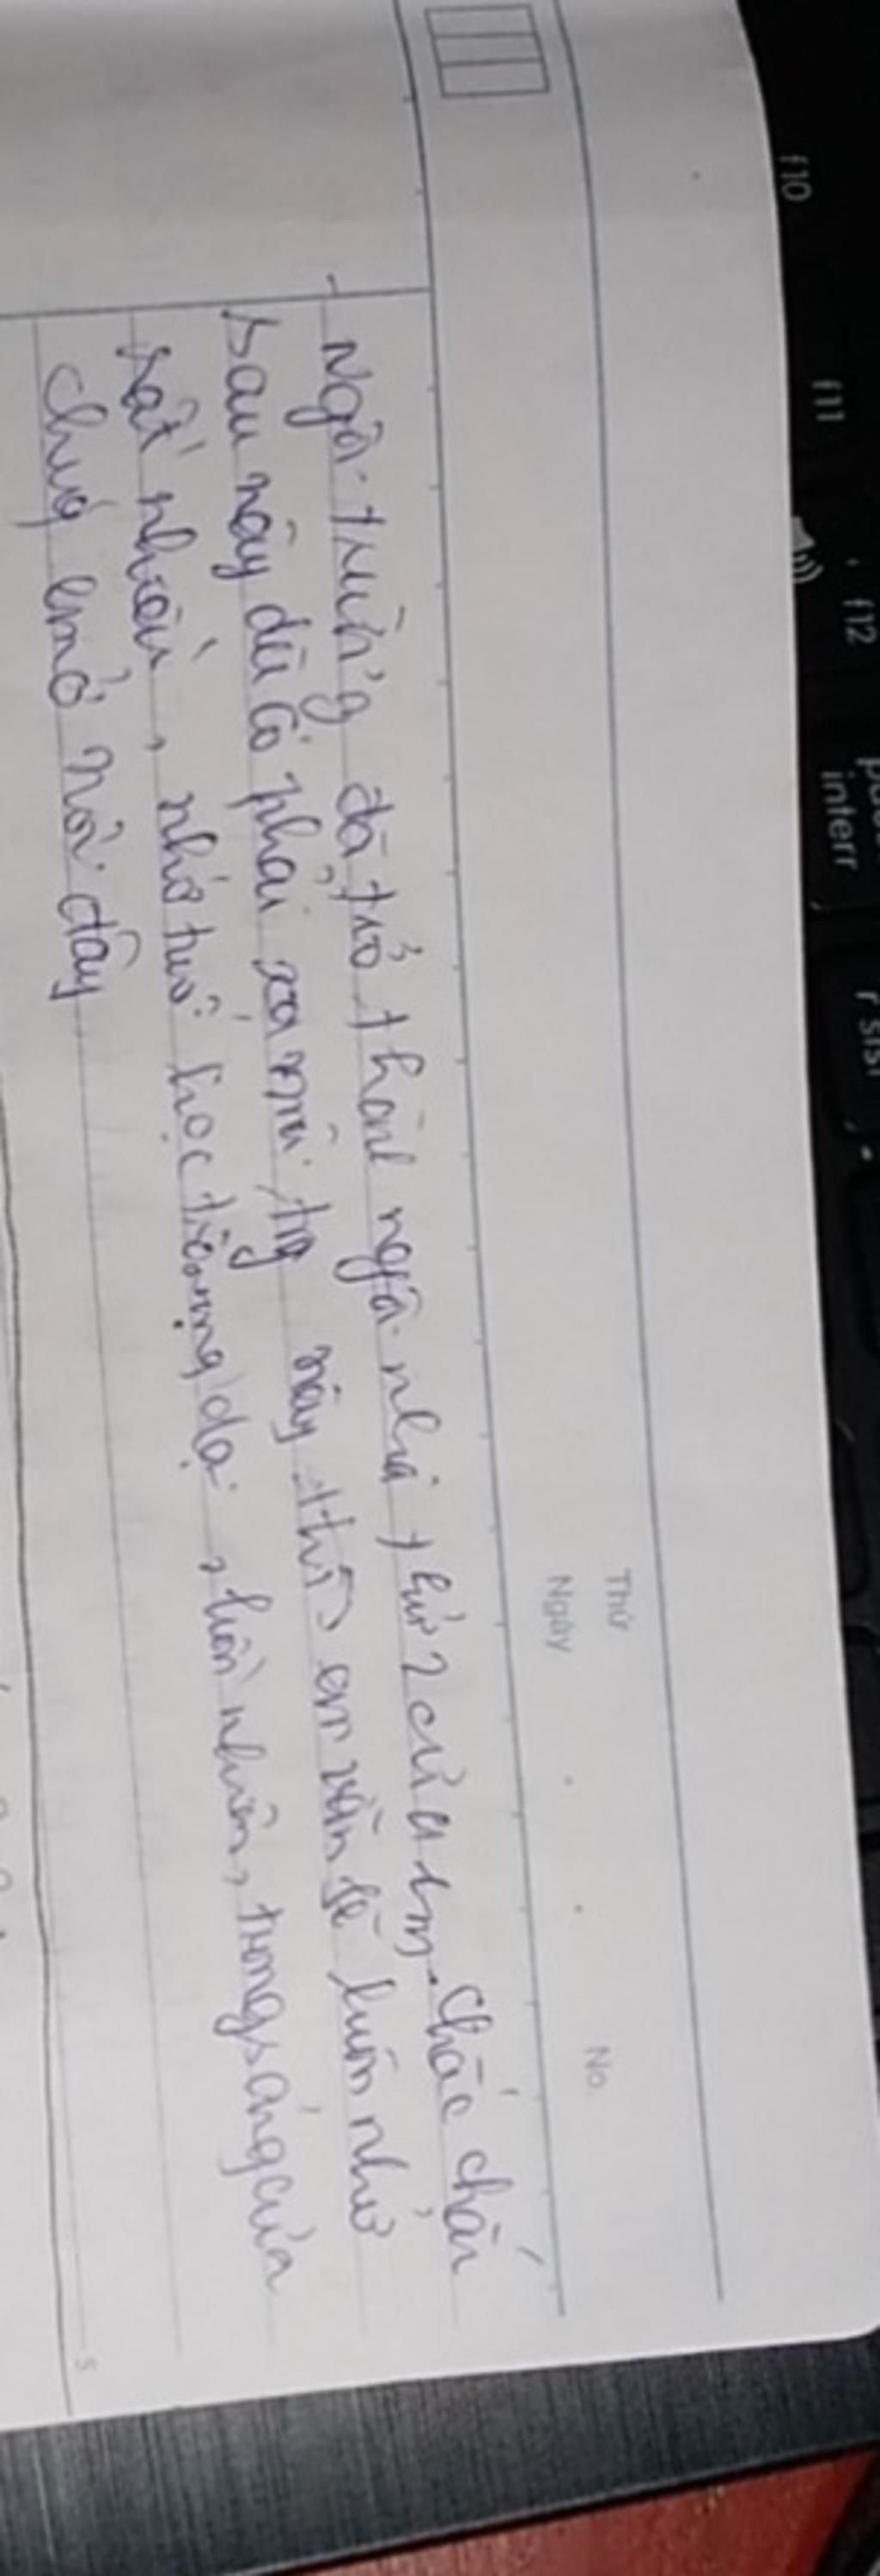 f10 f11 f12
interr
r sist
Thứ
Ngày No.
- Ngôi trường đã trở thành ngôi nhà thứ 2 của em. Chắc chắn
sau này dù có phải xa mái trg này thì em vẫn sẽ luôn nhớ
rất nhiều, nhớ tuổi học trò mộng dại, hồn nhiên, trong sáng của
chúng em ở nơi đây
s